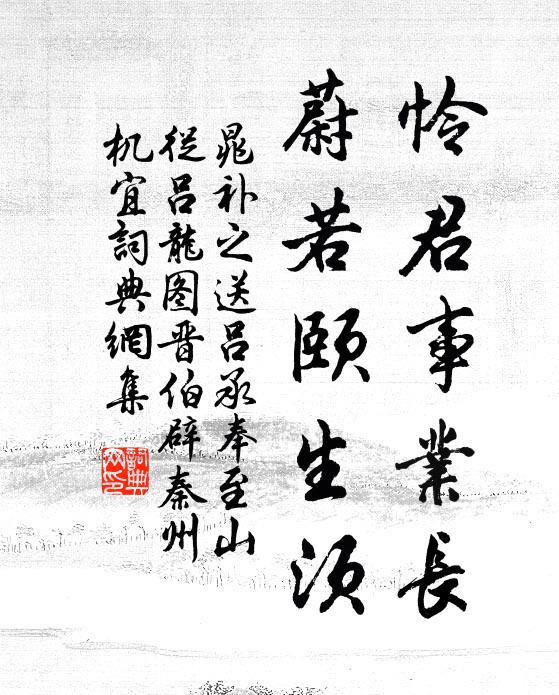 怜君事業長
蔚若颐生須
晁补之送呂承奉至山
從呂龍图晋伯辟秦州
机宜詞典網集
詞典网印